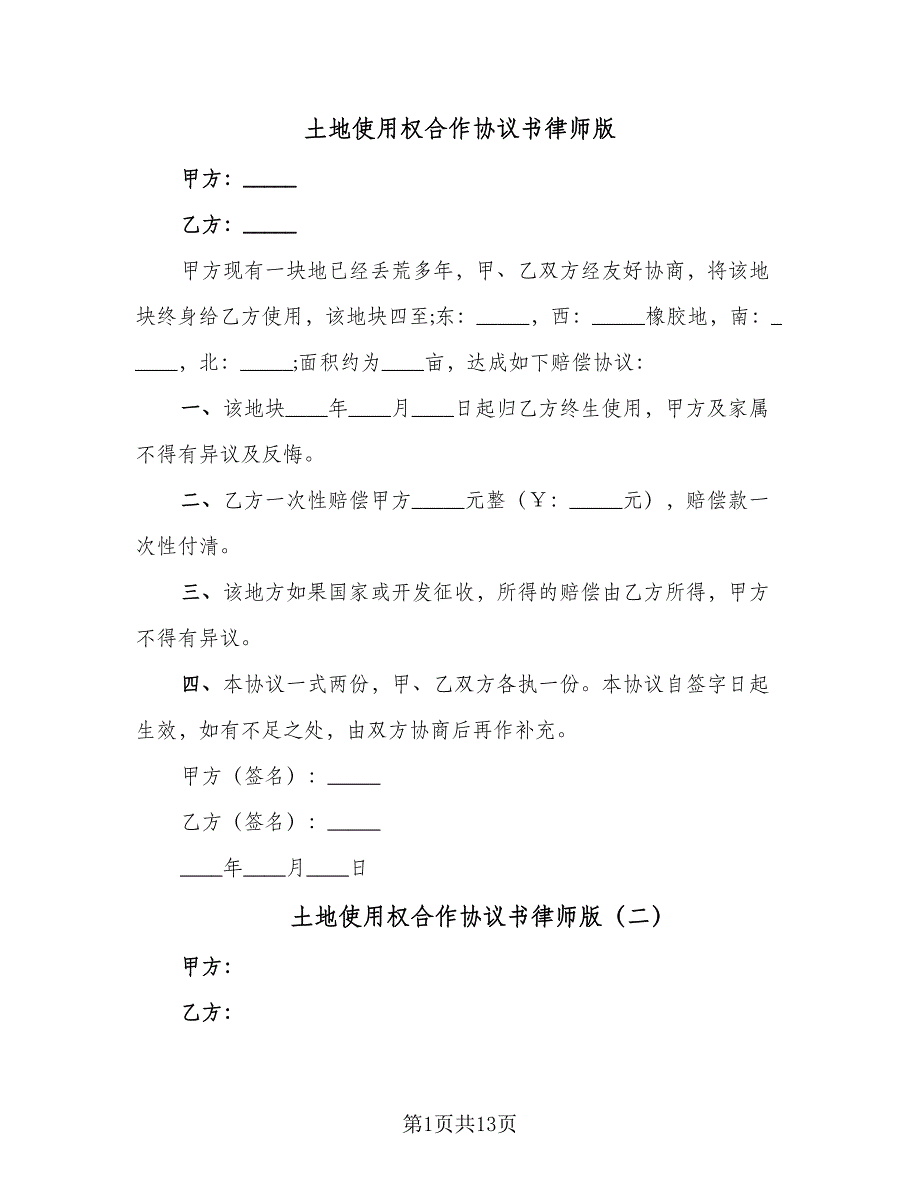 土地使用权合作协议书律师版
甲方：_____
乙方：_____
甲方现有一块地已经丢荒多年，甲、乙双方经友好协商，将该地
块终身给乙方使用，该地块四至;东：_____，西：_____橡胶地，南：_
____，北：_____;面积约为____亩，达成如下赔偿协议：
一、该地块____年____月____日起归乙方终生使用，甲方及家属
不得有异议及反悔。
二、乙方一次性赔偿甲方_____元整（￥：_____元），赔偿款一
次性付清。
三、该地方如果国家或开发征收，所得的赔偿由乙方所得，甲方
不得有异议。
四、本协议一式两份，甲、乙双方各执一份。本协议自签字日起
生效，如有不足之处，由双方协商后再作补充。
甲方（签名）：_____
乙方（签名）：_____
____年____月____日
土地使用权合作协议书律师版（二）
甲方：
乙方：
第1页共13页